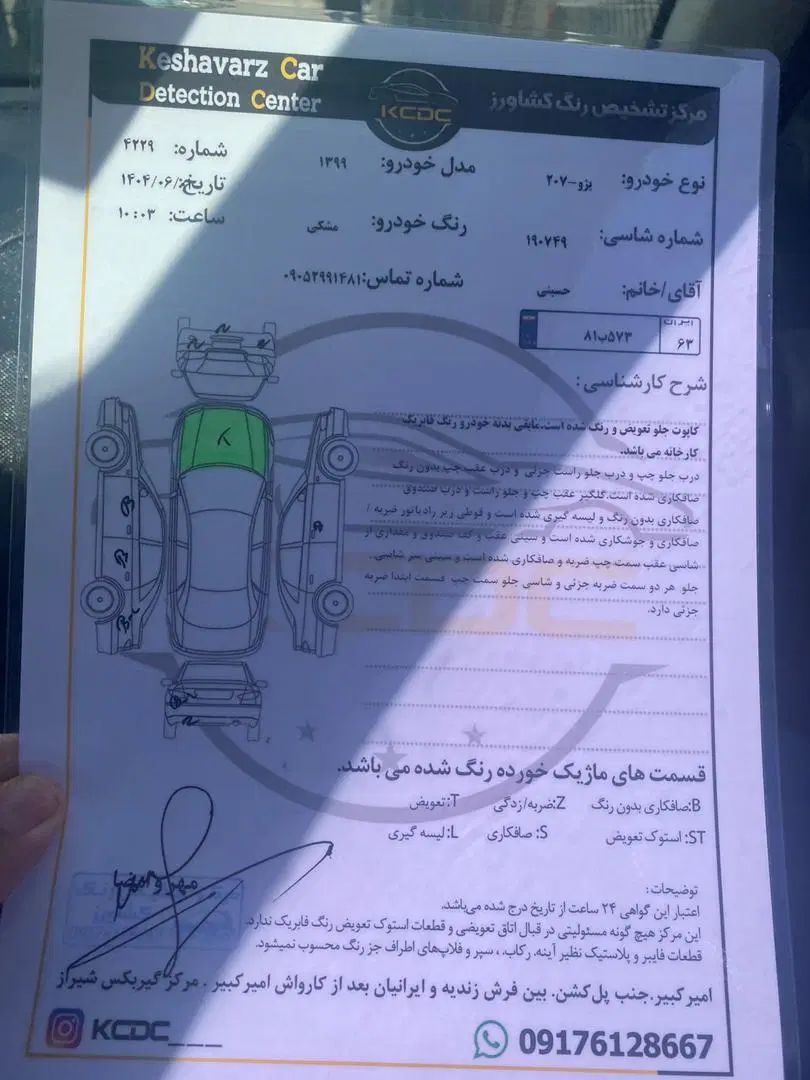 Keshavarz Car
Detection Center
KCDC
مرکز تشخیص رنگ کشاورز
نوع خودرو: پژو-۲۰۷
مدل خودرو: ۱۳۹۹
شماره: ۴۲۲۹
شماره شاسی: ۱۹۰۷۴۹
رنگ خودرو: مشکی
تاریخ: ۱۴۰۴/۰۶/
ساعت: ۱۰:۰۳
آقای/خانم: حسینی
شماره تماس: ۰۹۰۵۲۹۹۱۴۸۱
۵۷۳ب۸۱
ایران
۶۳
شرح کارشناسی:
کاپوت جلو تعویض و رنگ شده است.مابقی بدنه خودرو رنگ فابریک
کارخانه می باشد.
درب جلو چپ و درب جلو راست جزئی و درب عقب چپ بدون رنگ
صافکاری شده است.گلگیر عقب چپ و جلو راست و درب صندوق
صافکاری بدون رنگ و لیسه گیری شده است و قوطی زیر رادیاتور ضربه /
صافکاری و جوشکاری شده است و سینی عقب و کف صندوق و مقداری از
شاسی عقب سمت چپ ضربه و صافکاری شده است و سینی سر شاسی
جلو هر دو سمت ضربه جزئی و شاسی جلو سمت چپ قسمت ابتدا ضربه
جزئی دارد.
قسمت های ماژیک خورده رنگ شده می باشد.
B:صافکاری بدون رنگ Z:ضربه/زدگی T:تعویض
ST: استوک تعویض S: صافکاری L:لیسه گیری
توضیحات:
اعتبار این گواهی ۲۴ ساعت از تاریخ درج شده می‌باشد.
این مرکز هیچ گونه مسئولیتی در قبال اتاق تعویضی و قطعات استوک تعویض رنگ فابریک ندارد.
قطعات فایبر و پلاستیک نظیر آینه، رکاب، سپر و فلاپ‌های اطراف جز رنگ محسوب نمیشود.
مهر و امضا
امیر کبیر.جنب پل کشن. بین فرش زندیه و ایرانیان بعد از کارواش امیرکبیر . مرکز گیربکس شیراز
KCDC___
09176128667